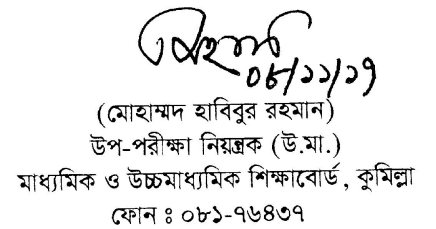 ০৮/১১/১৭
(মোহাম্মদ হাবিবুর রহমান)
উপ-পরীক্ষা নিয়ন্ত্রক (উ.মা.)
মাধ্যমিক ও উচ্চমাধ্যমিক শিক্ষাবোর্ড, কুমিল্লা
ফোন ঃ ০৮১-৭৬৪৩৭